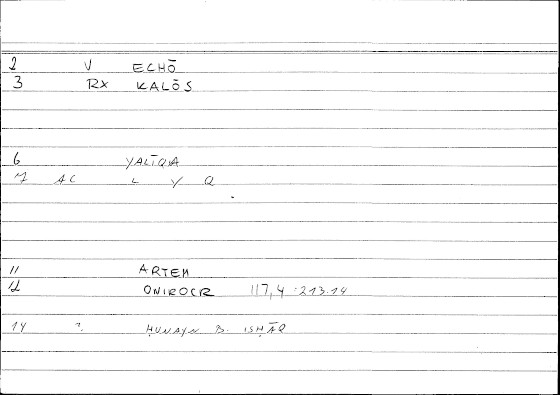 2 V ECHŌ
3 RX KALŌS
6 YALĪQA
7 AC L Y Q
11 ARTEM
12 ONIROCR 117,4 = 213.14
14 ? ḤUNAYN B. ISḤĀQ